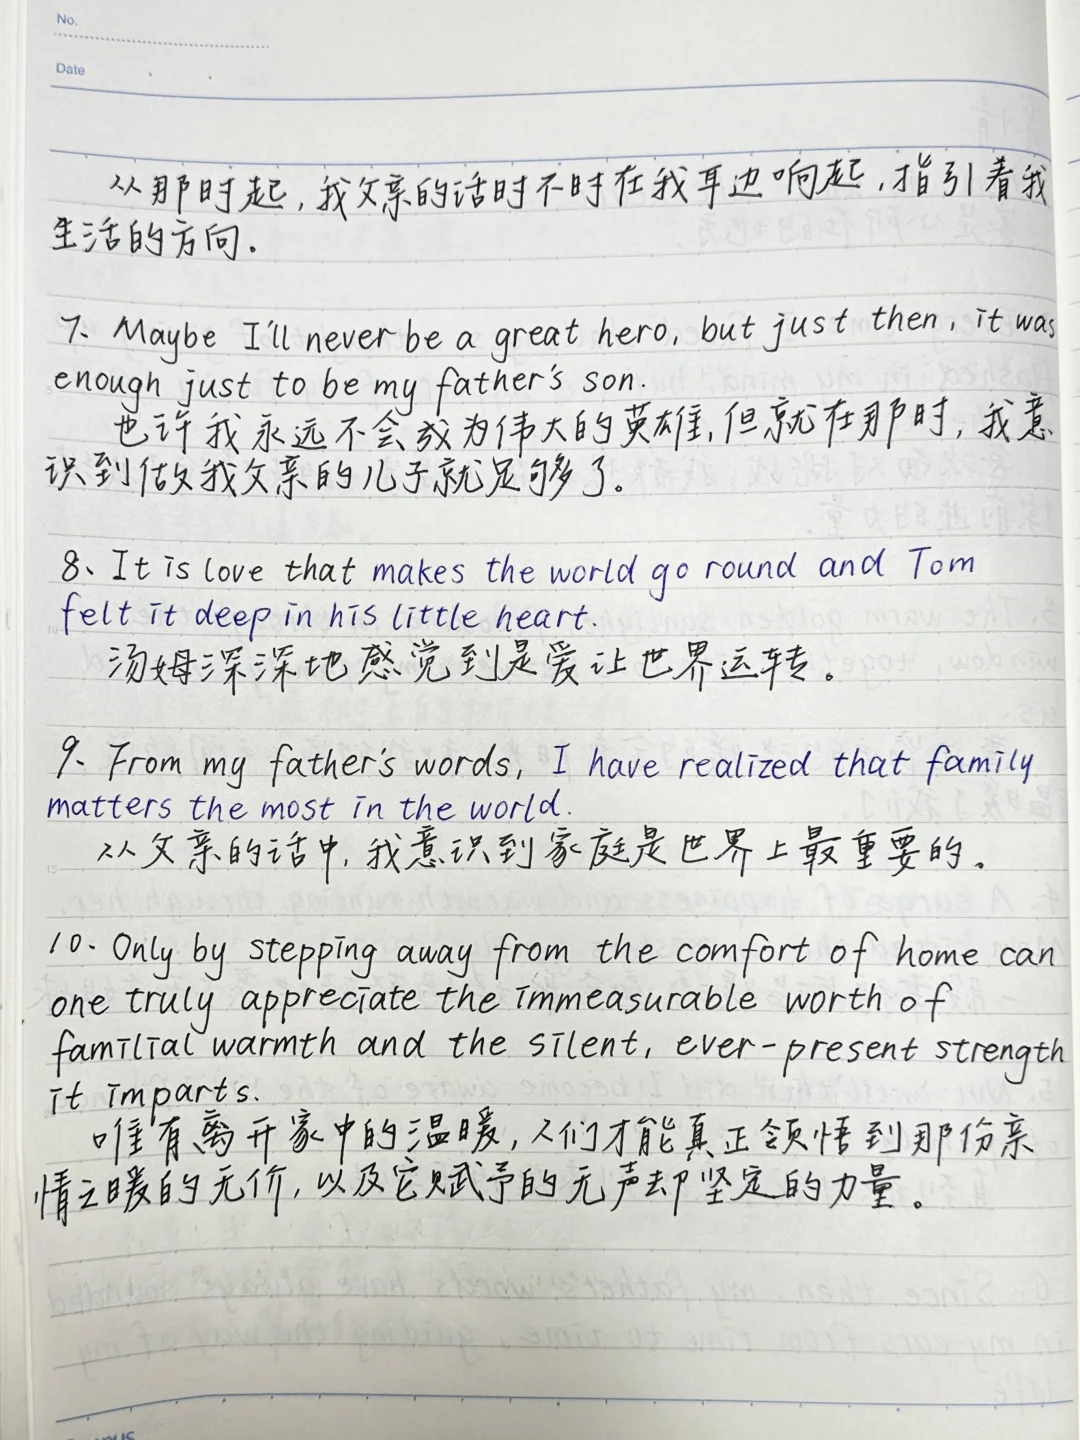 No.
Date
从那时起,我父亲的话时不时在我耳边响起,指引着我
生活的方向.
7、Maybe I'll never be a great hero, but just then, it was
enough just to be my father's son.
也许我永远不会成为伟大的英雄,但就在那时,我意
识到做我父亲的儿子就足够了.
8、It is love that makes the world go round and Tom
felt it deep in his little heart.
汤姆深深地感觉到是爱让世界运转。
9、From my father's words, I have realized that family
matters the most in the world.
从父亲的话中,我意识到家庭是世界上最重要的。
10、Only by stepping away from the comfort of home can
one truly appreciate the immeasurable worth of
familial warmth and the silent, ever-present strength
it imparts.
唯有离开家中的温暖,人们才能真正领悟到那份亲
情之暖的无价,以及它赋予的无声却坚定的力量。